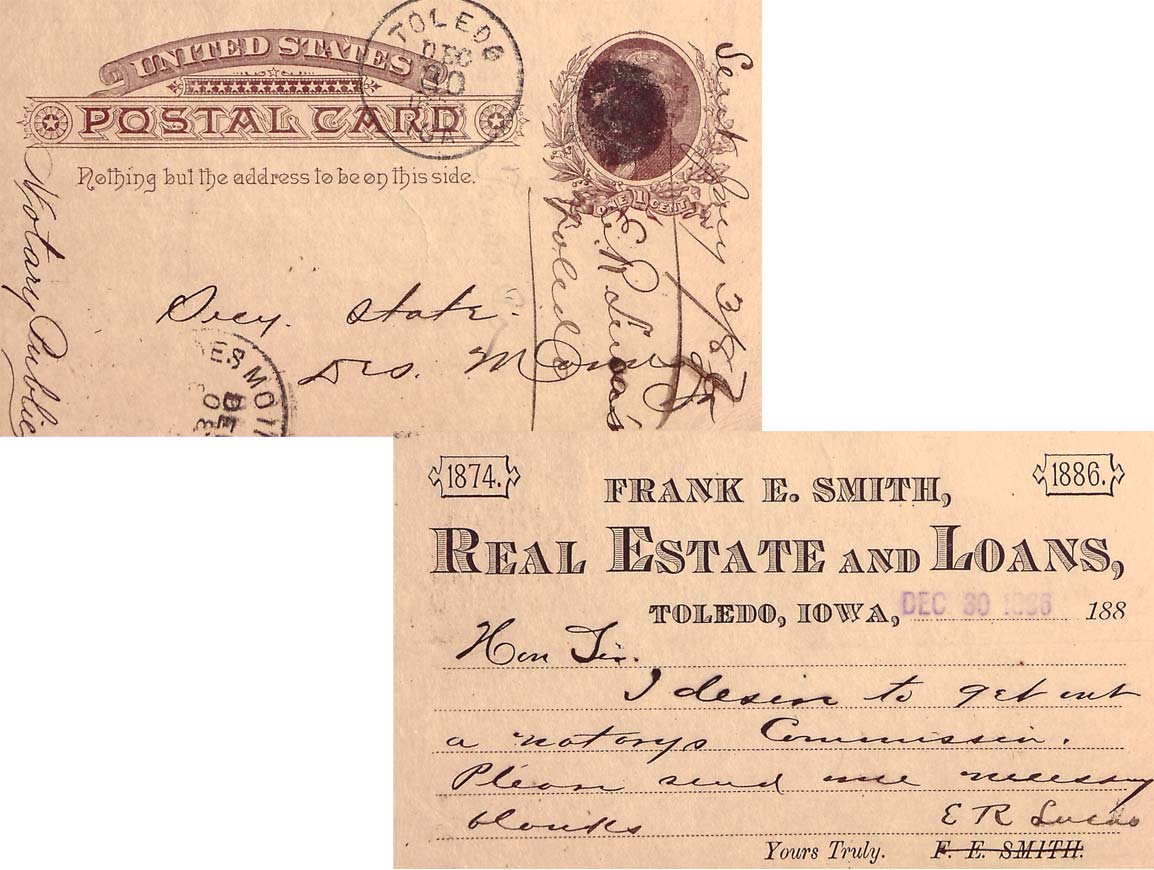 UNITED STATES
POSTAL CARD
Nothing but the address to be on this side.
ONE 1 CENT
TOLEDO
DEC
30
IOWA
Secy. State.
Des Moines
ES MOI
DE
Notary Public
Sent
3/87
E R Lucas
Toledo
1874.
1886.
FRANK E. SMITH,
REAL ESTATE AND LOANS,
TOLEDO, IOWA, DEC 30 1886 188
Hon Sir.
I desire to get out
a notarys Commission.
Please send me necessary
blanks E R Lucas
Yours Truly. F. E. SMITH.